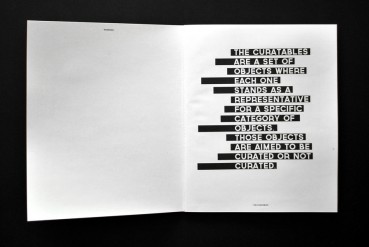 THE CURATABLES
ARE A SET OF
OBJECTS WHERE
EACH ONE
STANDS AS A
REPRESENTATIVE
FOR A SPECIFIC
CATEGORY OF
OBJECTS
THOSE OBJECTS
ARE AIMED TO BE
CURATED OR NOT
CURATED